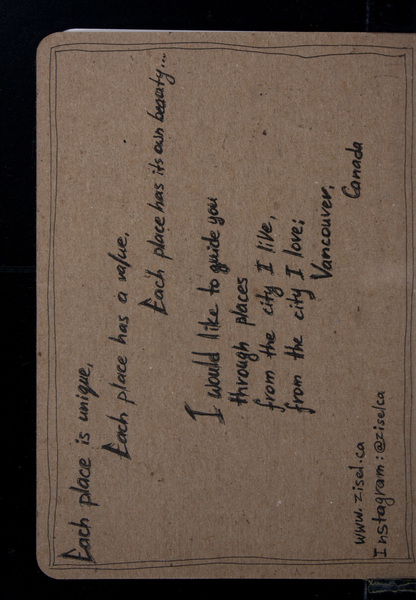 Each place is unique,
Each place has a value,
Each place has its own beauty...
I would like to guide you
through places
from the city I live,
from the city I love;
Vancouver,
Canada
www.zisel.ca
Instagram: @zisel.ca